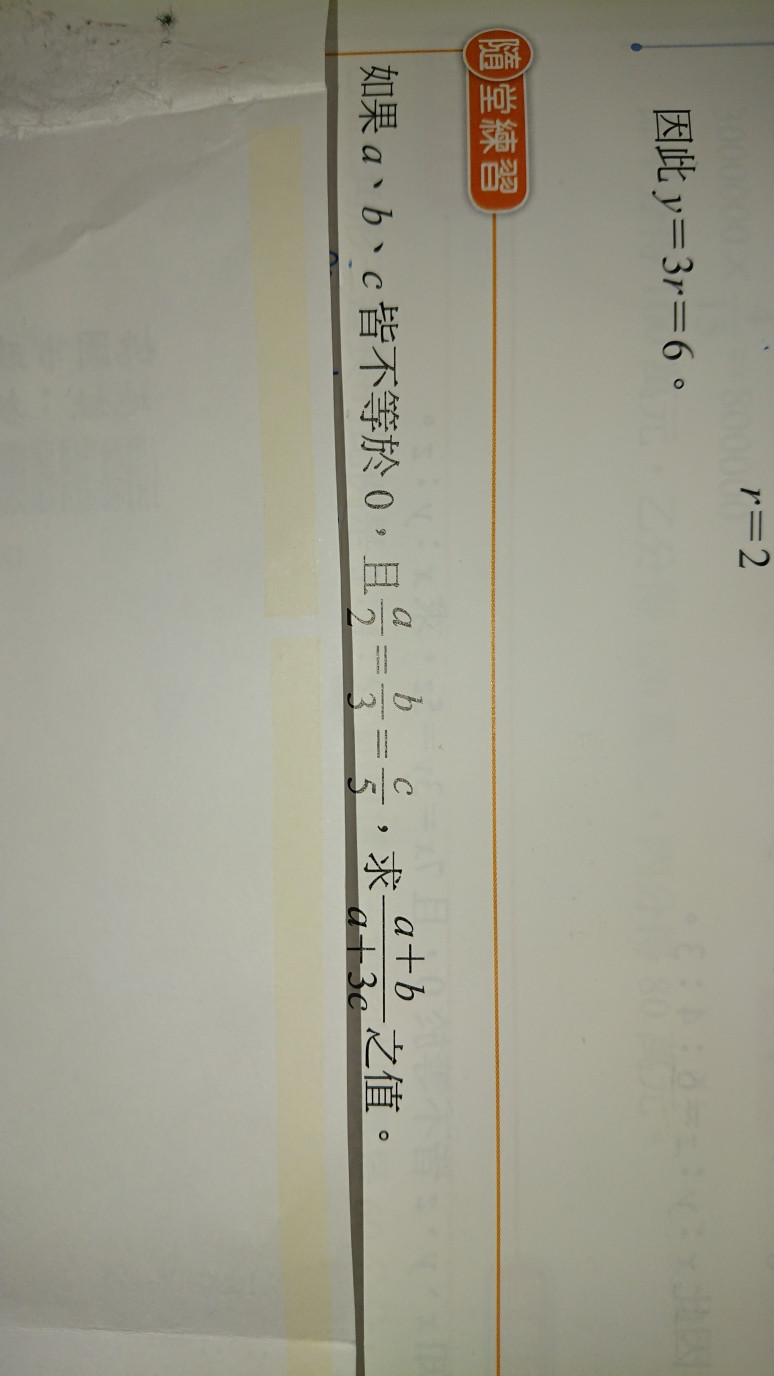 r=2
因此 y=3r=6。
隨堂練習
如果 a、b、c 皆不等於 0，且 a/2 = b/3 = c/5，求 (a+b)/(a+3c) 之值。